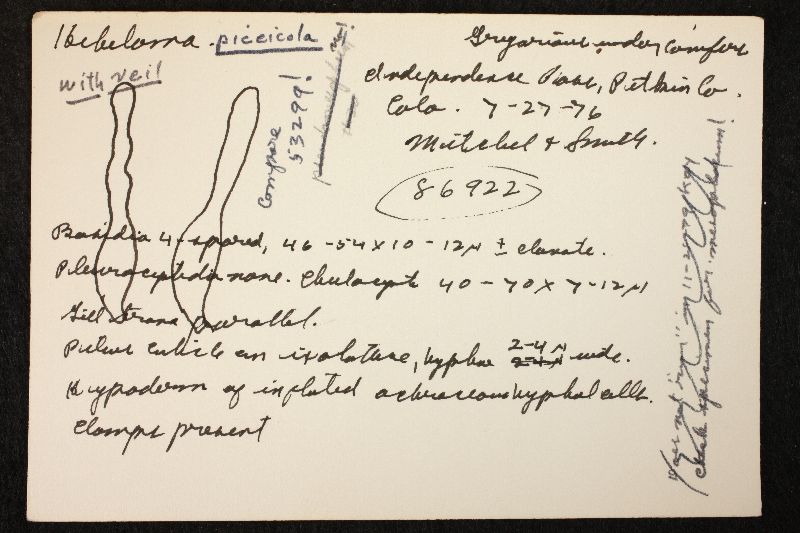 Hebeloma piceicola
with veil
Gregarious under conifers
Independence Pass, Pitkin Co.
Colo. 7-27-76
Mitchel & Smith.
86922
Compare
53299!
Basidia 4-spored, 46-54 x 10-12 µ ± clavate.
Pleurocystidia none. Cheilocyst 40-70 x 7-12 µ
Gill trama parallel.
Pileus cuticle an ixolattice, hyphae 2-4 µ wide.
Hypoderm of inflated ochraceous hyphal cells.
Clamps present
check specimen for